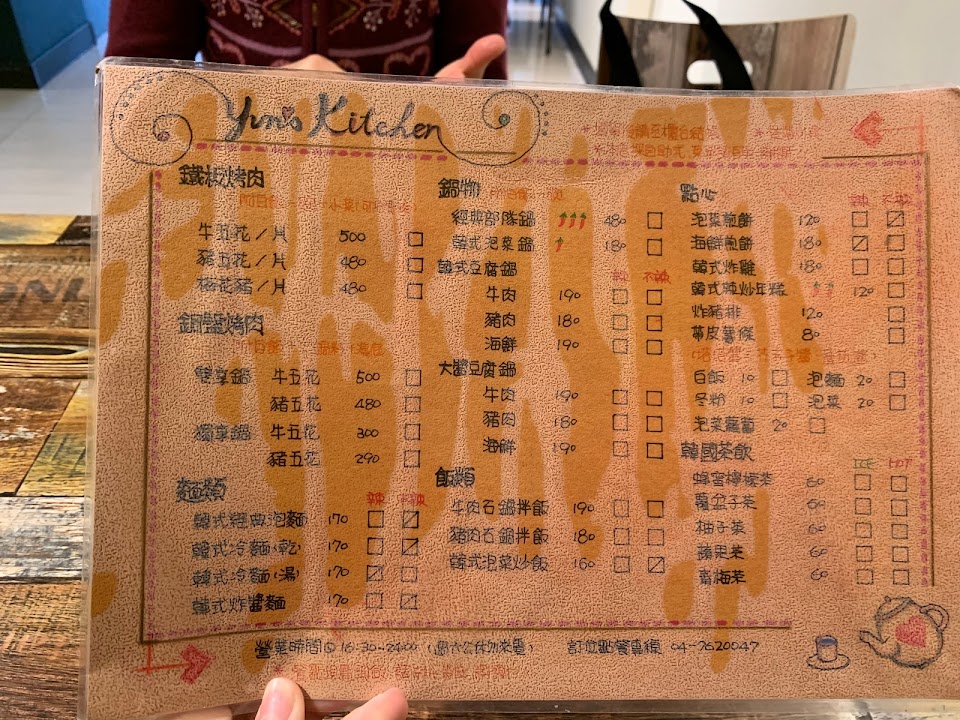 Yun's Kitchen
鐵板烤肉
牛五花／片 500
豬五花／片 480
梅花豬／片 480
銅盤烤肉
雙享鍋 牛五花 500
豬五花 480
獨享鍋 牛五花 300
豬五花 290
麵類
辣 不辣
韓式經典泡麵 170
韓式冷麵(乾) 170
韓式冷麵(湯) 170
韓式炸醬麵 170
鍋物
經典部隊鍋 480
韓式泡菜鍋 180
韓式豆腐鍋
辣 不辣
牛肉 190
豬肉 180
海鮮 190
大醬豆腐鍋
牛肉 190
豬肉 180
海鮮 190
飯類
牛肉石鍋拌飯 190
豬肉石鍋拌飯 180
韓式泡菜炒飯 160
點心
辣 不辣
泡菜煎餅 120
海鮮煎餅 180
韓式炸雞 180
韓式辣炒年糕 120
炸豬排 120
帶皮薯條 80
白飯 10 泡麵 20
冬粉 10 泡菜 20
泡菜蘿蔔 20
韓國茶飲
ICE HOT
蜂蜜檸檬茶 60
覆盆子茶 60
柚子茶 60
蘋果茶 60
青梅茶 60
營業時間 16:30~24:00 (週六公休勿來電) 訂位點餐專線 04-7620047